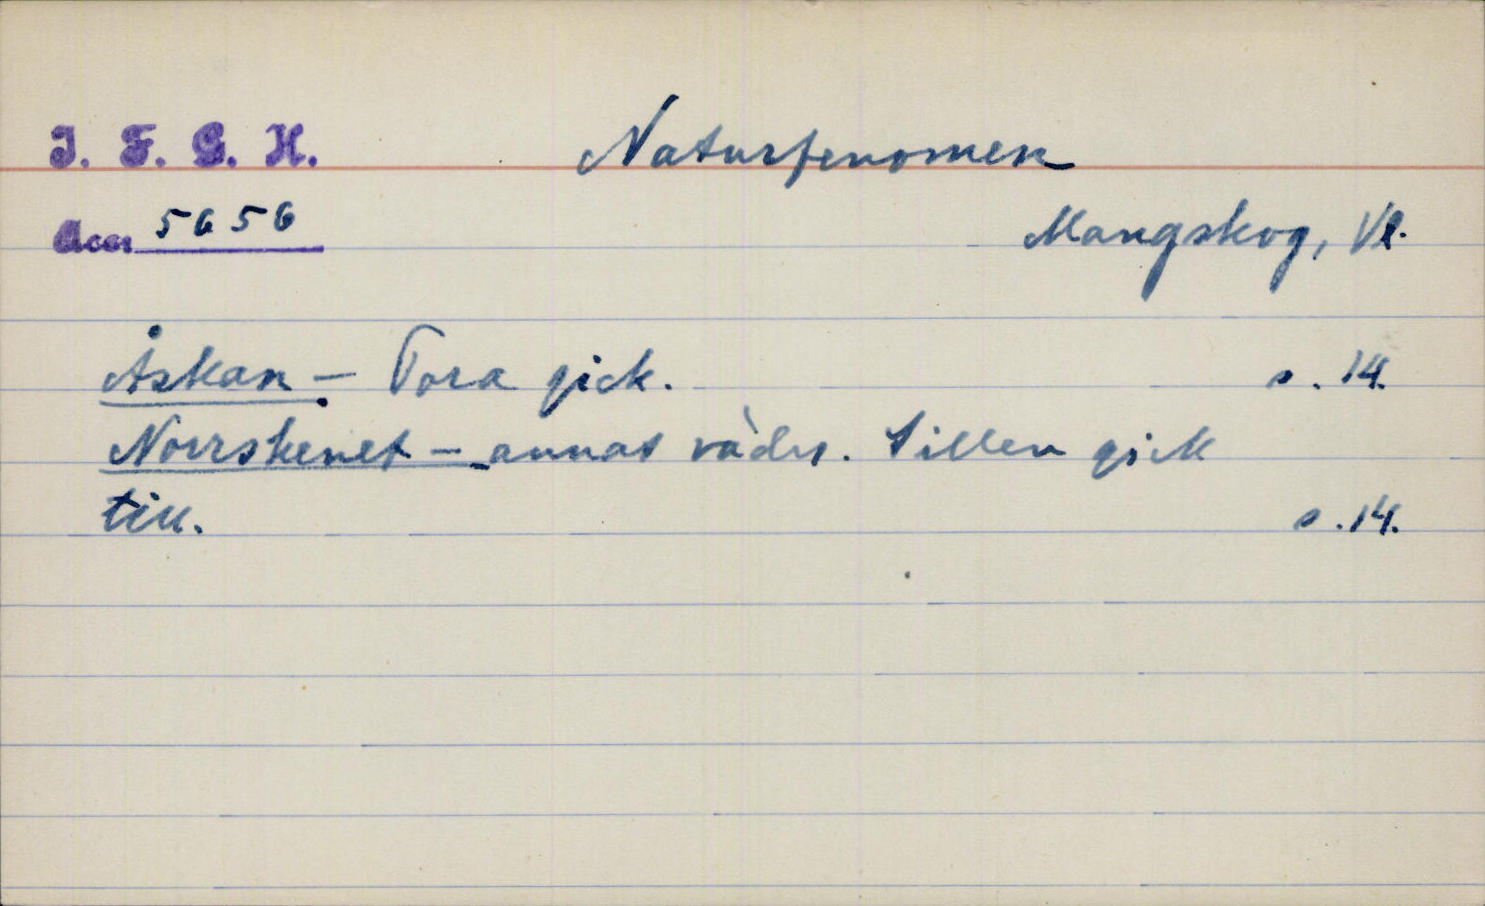 I. F. G. H.
Naturfenomen
Acc. 5656
Mangskog, Vl.
Åskan – Tora gick. s. 14.
Norrskenet – annat väder. Sillen gick
till. s. 14.